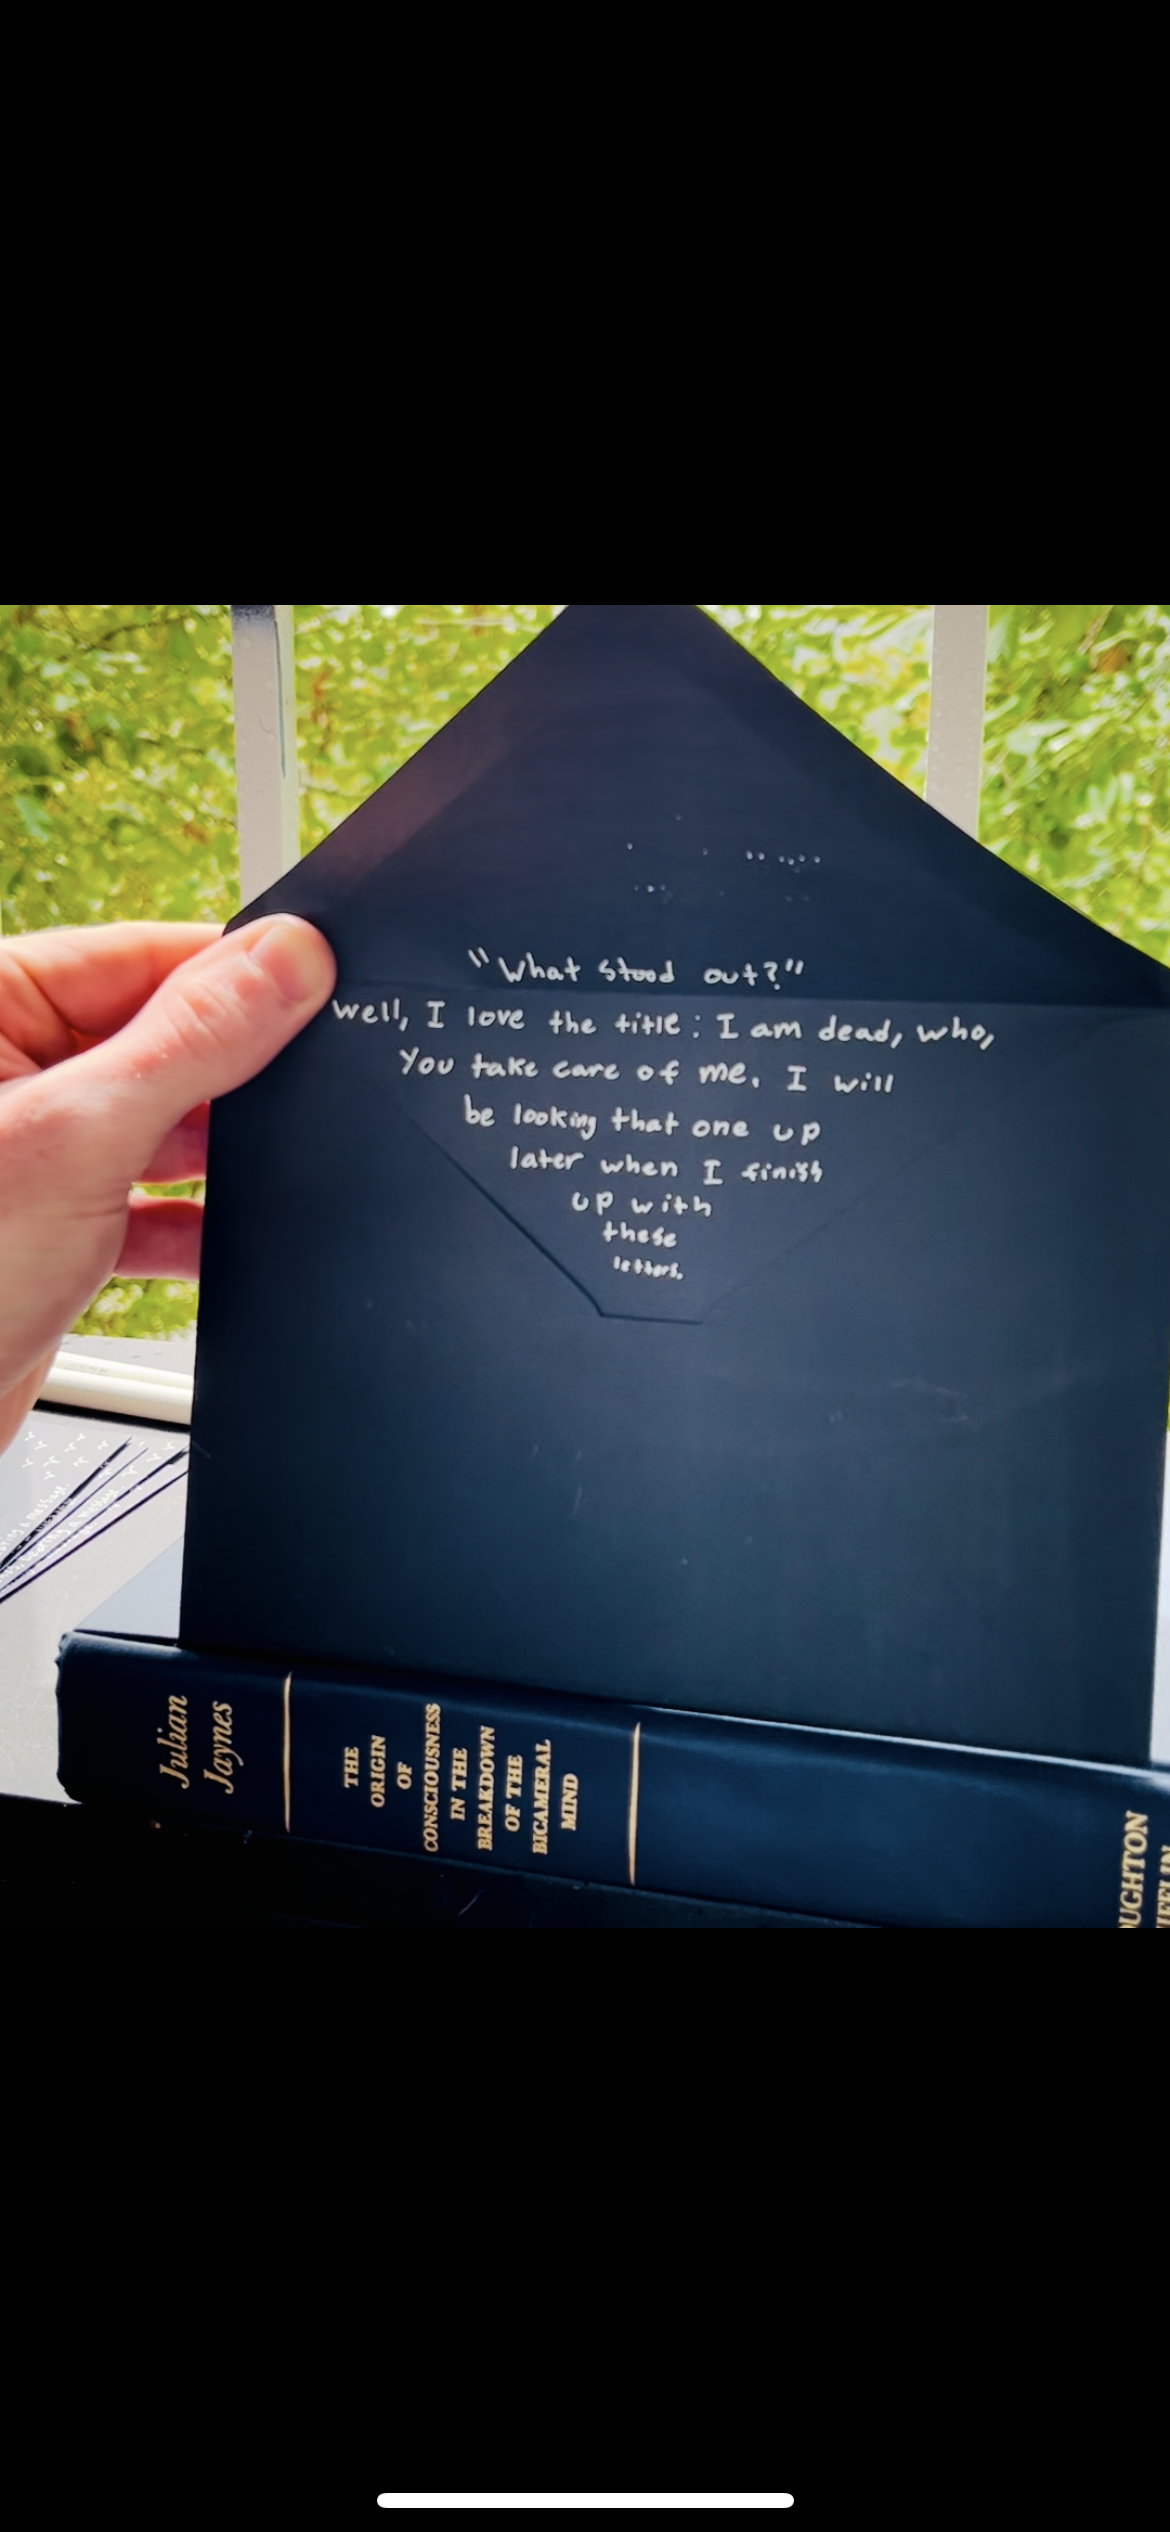 "What stood out?"
Well, I love the title: I am dead, who,
You take care of me. I will
be looking that one up
later when I finish
up with
these
letters.
Julian
Jaynes
THE
ORIGIN
OF
CONSCIOUSNESS
IN THE
BREAKDOWN
OF THE
BICAMERAL
MIND
OUGHTON